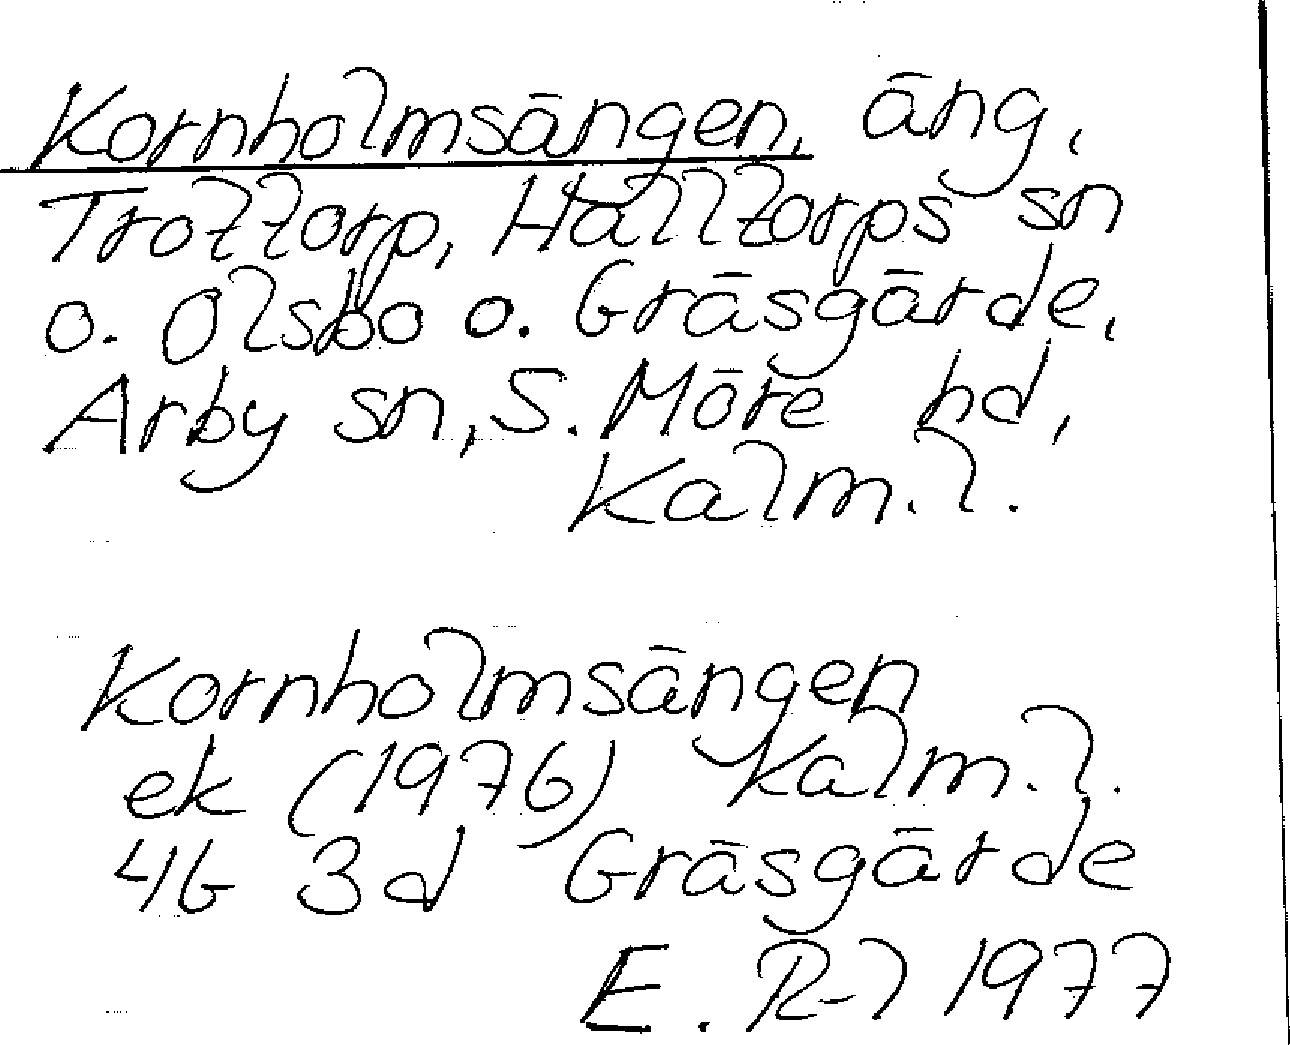 Kornholmsängen, äng,
Trottorp, Halltorps sn
o. Olsbo o. Gräsgärde,
Arby sn, S. Möre hd,
Kalm. l.
Kornholmsängen
ek (1976) Kalm. l.
4G 3d Gräsgärde
E. R-l 1977